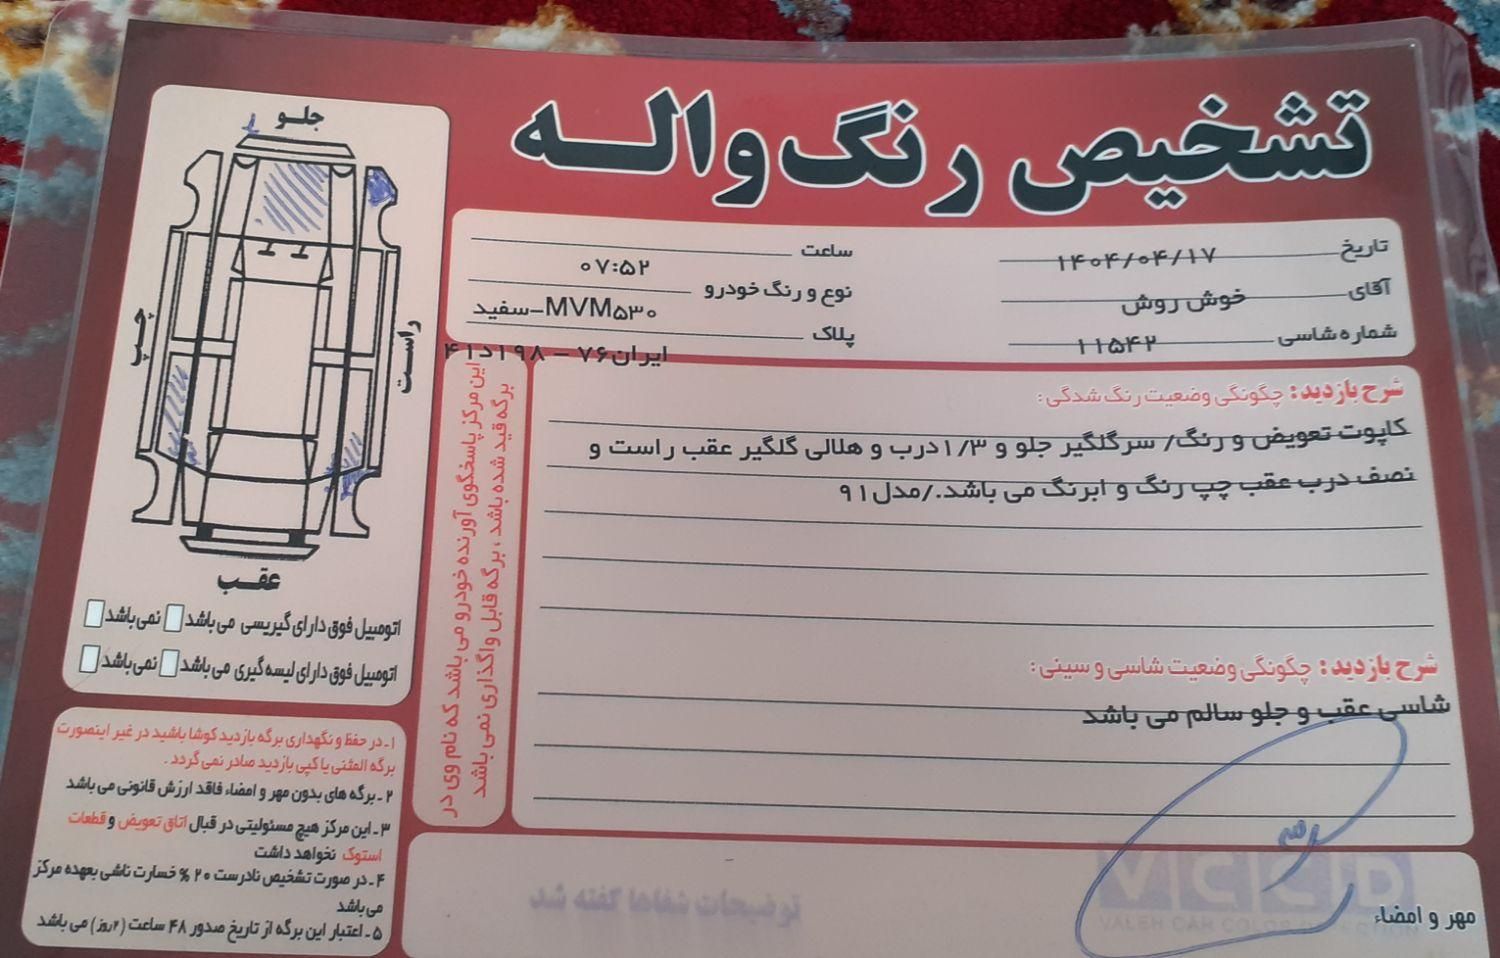 تشخیص رنگ واله
تاریخ ۱۴۰۴/۰۴/۱۷
ساعت ۰۷:۵۲
آقای خوش روش
نوع و رنگ خودرو MVM۵۳۰-سفید
شماره شاسی ۱۱۵۴۲
پلاک ایران۷۶ - ۱۹۸د۴۱
جلـو
چپ
راست
عقـب
اتومبیل فوق دارای گیریسی می باشد نمی باشد
اتومبیل فوق دارای لیسه گیری می باشد نمی باشد
این مرکز پاسخگوی آورنده خودرو می باشد که نام وی در
برگه قید شده باشد ، برگه قابل واگذاری نمی باشد
شرح بازدید: چگونگی وضعیت رنگ شدگی :
کاپوت تعویض و رنگ/ سرگلگیر جلو و ۱/۳درب و هلالی گلگیر عقب راست و
نصف درب عقب چپ رنگ و ابرنگ می باشد./مدل۹۱
شرح بازدید: چگونگی وضعیت شاسی و سینی :
شاسی عقب و جلو سالم می باشد
۱ـ در حفظ و نگهداری برگه بازدید کوشا باشید در غیر اینصورت
برگه المثنی یا کپی بازدید صادر نمی گردد .
۲ـ برگه های بدون مهر و امضاء فاقد ارزش قانونی می باشد
۳ـ این مرکز هیچ مسئولیتی در قبال اتاق تعویض و قطعات
استوک نخواهد داشت
۴ـ در صورت تشخیص نادرست ۲۰ % خسارت ناشی بعهده مرکز
می باشد
۵ـ اعتبار این برگه از تاریخ صدور ۴۸ ساعت (۲روز) می باشد
توضیحات شفاها گفته شد
VCCD
VALEH CAR COLOR DETECTION
مهر و امضاء